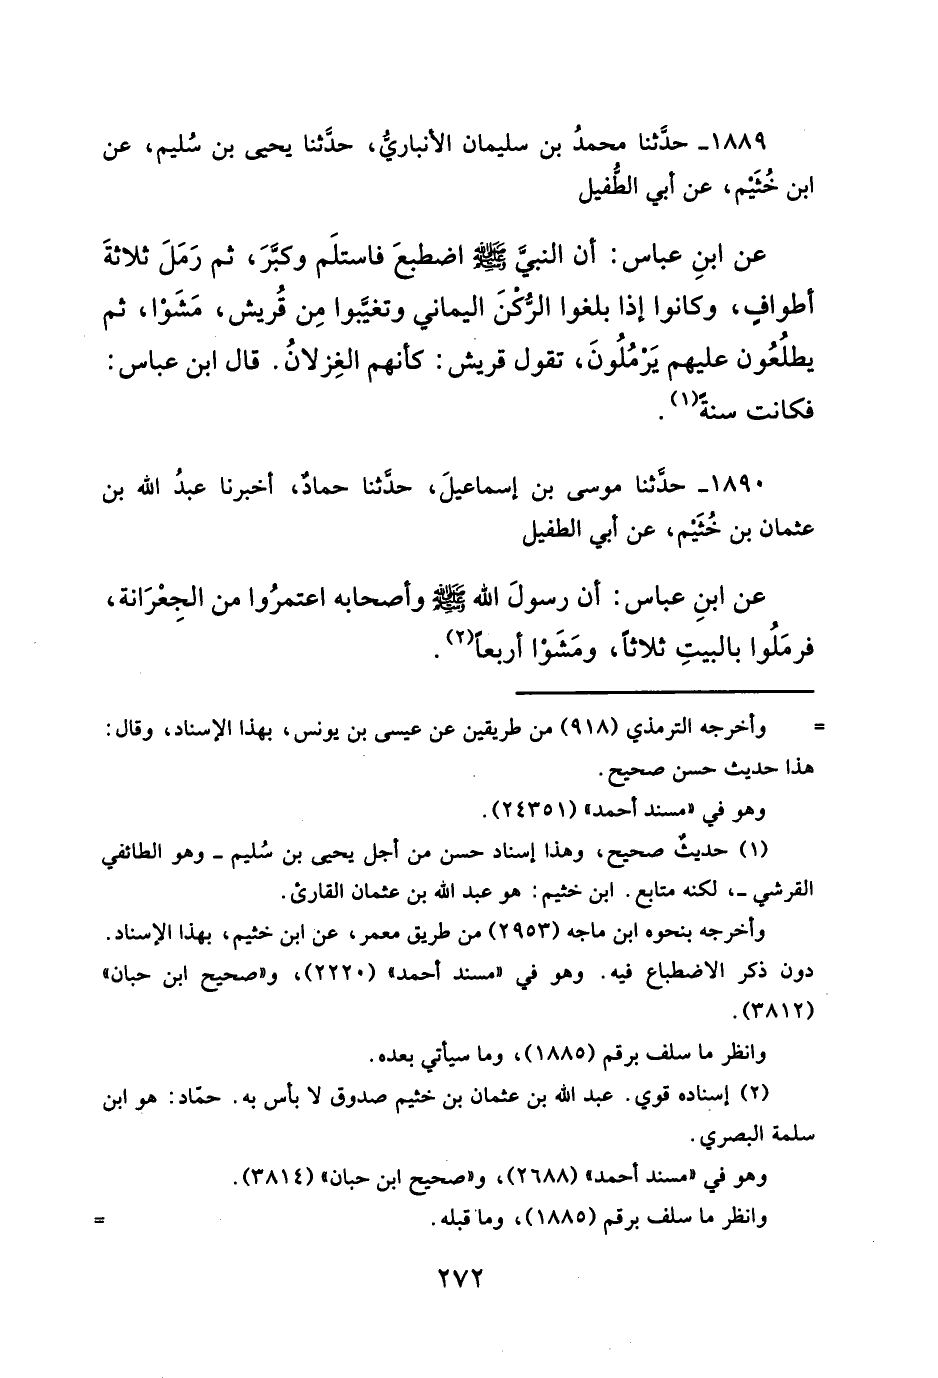 ١٨٨٩ـ حدَّثنا محمدُ بن سليمان الأنباريُّ، حدَّثنا يحيى بن سُليم، عن
ابن خُثَيْم، عن أبي الطُّفيل
عن ابنِ عباس: أن النبيَّ ﷺ اضطبعَ فاستلَم وكبَّرَ، ثم رَمَلَ ثلاثةَ
أطوافٍ، وكانوا إذا بلغوا الرُّكْنَ اليماني وتغيَّبوا مِن قُريش، مَشَوْا، ثم
يطلُعُون عليهم يَرْمُلُونَ، تقول قريش: كأنهم الغِزلانُ. قال ابن عباس:
فكانت سنةً(١).
١٨٩٠ـ حدَّثنا موسى بن إسماعيلَ، حدَّثنا حمادٌ، أخبرنا عبدُ الله بن
عثمان بن خُثَيْم، عن أبي الطفيل
عن ابنِ عباس: أن رسولَ الله ﷺ وأصحابه اعتمرُوا من الجِعْرَانة،
فرمَلُوا بالبيتِ ثلاثاً، ومَشَوْا أربعاً(٢).
= وأخرجه الترمذي (٩١٨) من طريقين عن عيسى بن يونس، بهذا الإسناد، وقال:
هذا حديث حسن صحيح.
وهو في «مسند أحمد» (٢٤٣٥١).
(١) حديثٌ صحيح، وهذا إسناد حسن من أجل يحيى بن سُليم ـ وهو الطائفي
القرشي ـ، لكنه متابع. ابن خثيم: هو عبد الله بن عثمان القارئ.
وأخرجه بنحوه ابن ماجه (٢٩٥٣) من طريق معمر، عن ابن خثيم، بهذا الإسناد.
دون ذكر الاضطباع فيه. وهو في «مسند أحمد» (٢٢٢٠)، و«صحيح ابن حبان»
(٣٨١٢).
وانظر ما سلف برقم (١٨٨٥)، وما سيأتي بعده.
(٢) إسناده قوي. عبد الله بن عثمان بن خثيم صدوق لا بأس به. حمّاد: هو ابن
سلمة البصري.
وهو في «مسند أحمد» (٢٦٨٨)، و«صحيح ابن حبان» (٣٨١٤).
وانظر ما سلف برقم (١٨٨٥)، وما قبله. =
٢٧٢